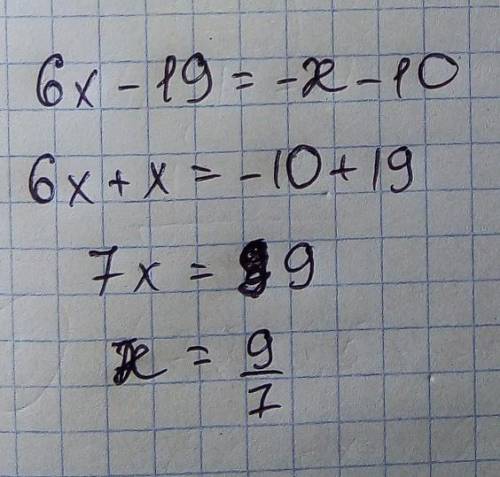 6x - 19 = -x - 10
6x + x = -10 + 19
7x = 9
x = 9/7